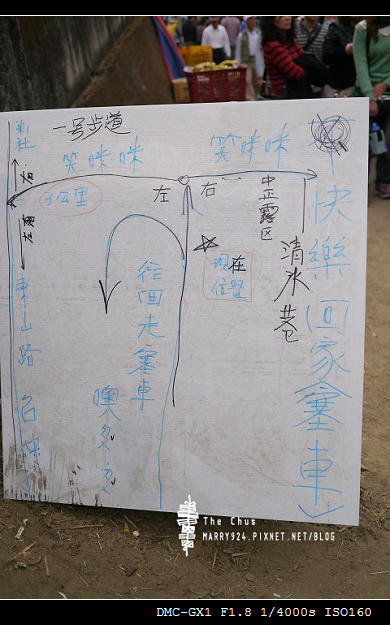 一号步道
笑咪咪
笑咪咪
右
3公里
左
右
中正露区
清水巷
快樂回家塞車
現在位置
往回走塞車
噢
左
東山路
The Chus
MARRY924.PIXNET.NET/BLOG
DMC-GX1 F1.8 1/4000s ISO160